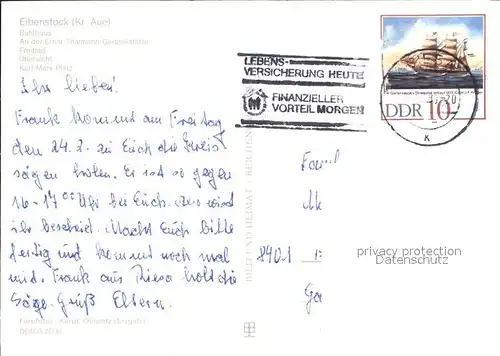 Eibenstock (Kr. Aue)
Rathaus
An der Ernst-Thälmann-Gedenkstätte
Freibad
Übersicht
Karl-Marx-Platz
LEBENS-
VERSICHERUNG HEUTE
FINANZIELLER
VORTEIL MORGEN
DDR 10
K
Ihr lieben!
Frank kommt am Freitag
den 24.2. zu Euch die Kreis
sägen holen. Er ist so gegen
16-17 00 Uhr bei Euch.
ihr bescheid. Macht Euch bitte
fertig und kommt noch mal
mit. Frank aus Riesa holt die
Säge. Gruß Eltern.
BILD UND HEIMAT REICHENB
8401
privacy protection
Datenschutz